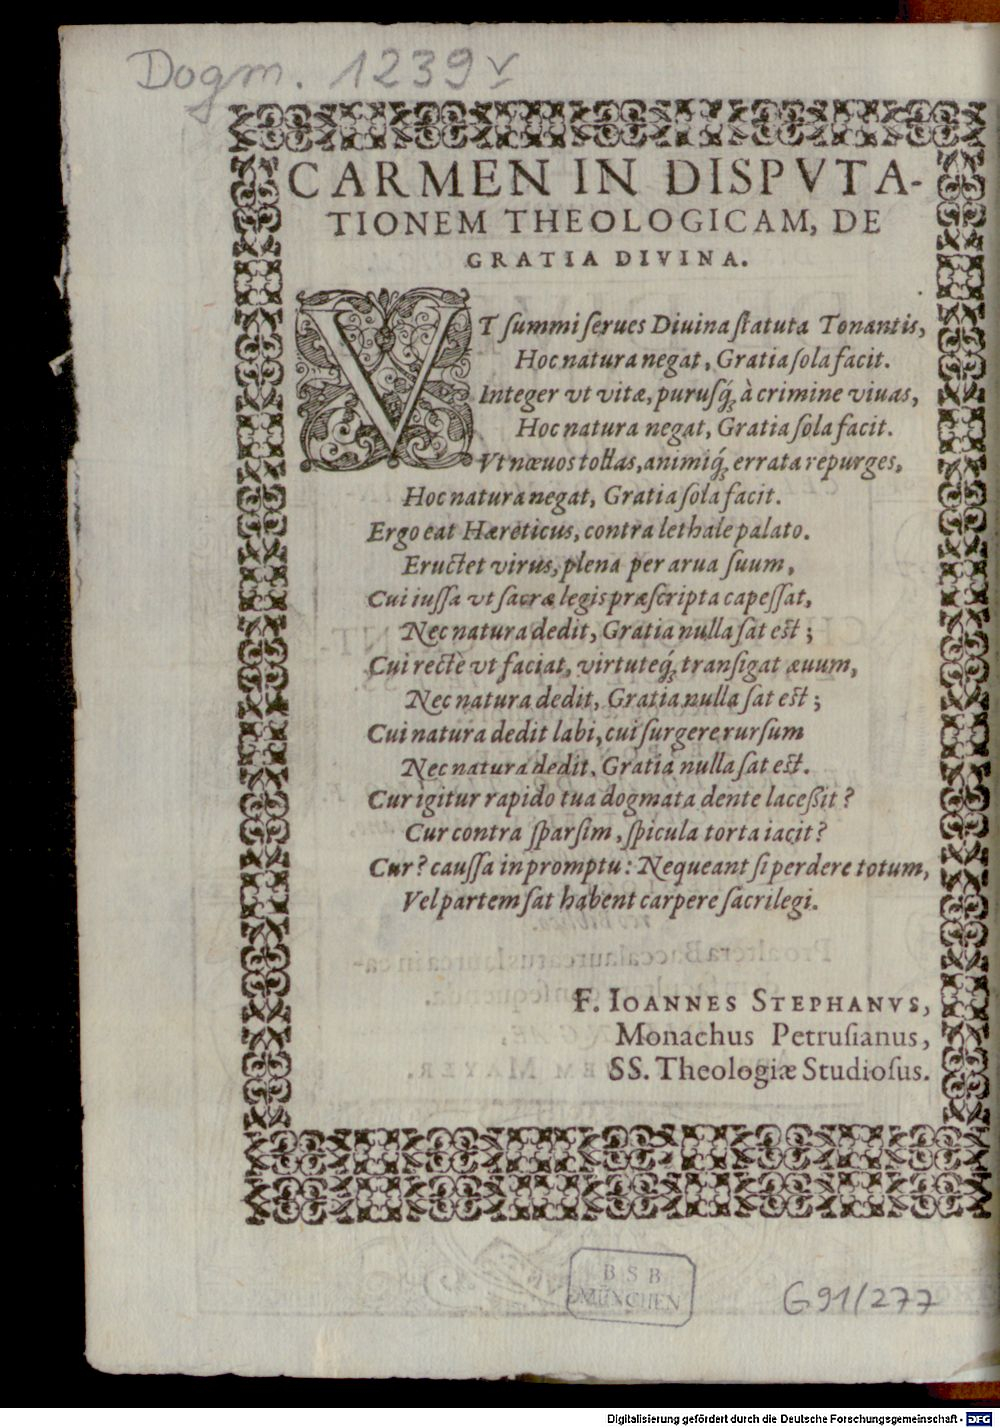 Dogm. 1239 v
CARMEN IN DISPVTA-
TIONEM THEOLOGICAM, DE
GRATIA DIVINA.
VT ſummi ſerues Diuina ſtatuta Tonantis,
Hoc natura negat, Gratia ſola facit.
Integer vt vitæ, puruſq́; à crimine viuas,
Hoc natura negat, Gratia ſola facit.
Vt næuos tollas, animiq́; errata repurges,
Hoc natura negat, Gratia ſola facit.
Ergo eat Hæreticus, contra lethale palato.
Eructet virus, plena per arua ſuum,
Cui iuſſa vt ſacræ legis præſcripta capeſſat,
Nec natura dedit, Gratia nulla ſat est;
Cui rectè vt faciat, virtuteq́; tranſigat æuum,
Nec natura dedit, Gratia nulla ſat est;
Cui natura dedit labi, cui ſurgere rurſum
Nec natura dedit, Gratia nulla ſat est.
Cur igitur rapido tua dogmata dente laceßit?
Cur contra ſparſim, ſpicula torta iacit?
Cur? cauſſa in promptu: Nequeant ſi perdere totum,
Vel partem ſat habent carpere ſacrilegi.
F. IOANNES STEPHANVS,
Monachus Petrusianus,
SS. Theologiæ Studioſus.
BSB
MÜNCHEN
G91/277
Digitalisierung gefördert durch die Deutsche Forschungsgemeinschaft - DFG